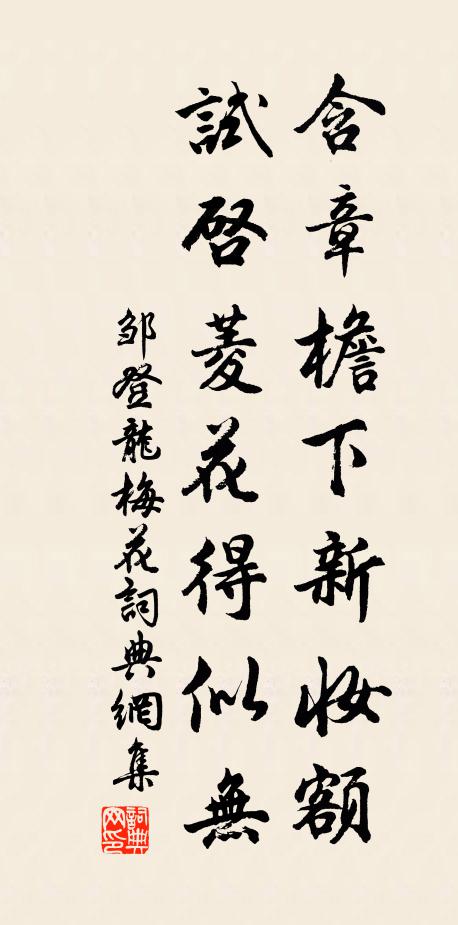 含章檐下新妆額
試啓菱花得似無
鄒登龍梅花詞典網集
詞典網印